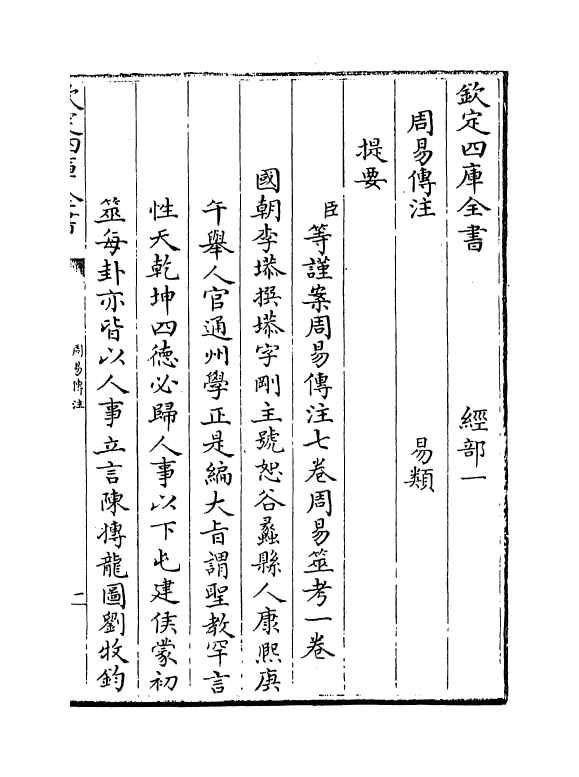 欽定四庫全書　經部一
周易傳注　易類
提要
臣等謹案周易傳注七卷周易筮考一卷
國朝李塨撰塨字剛主號恕谷蠡縣人康熙庚
午舉人官通州學正是編大旨謂聖教罕言
性天乾坤四德必歸人事以下屯建侯蒙初
筮每卦亦皆以人事立言陳摶龍圖劉牧鈎
欽定四庫全書
周易傳注
二